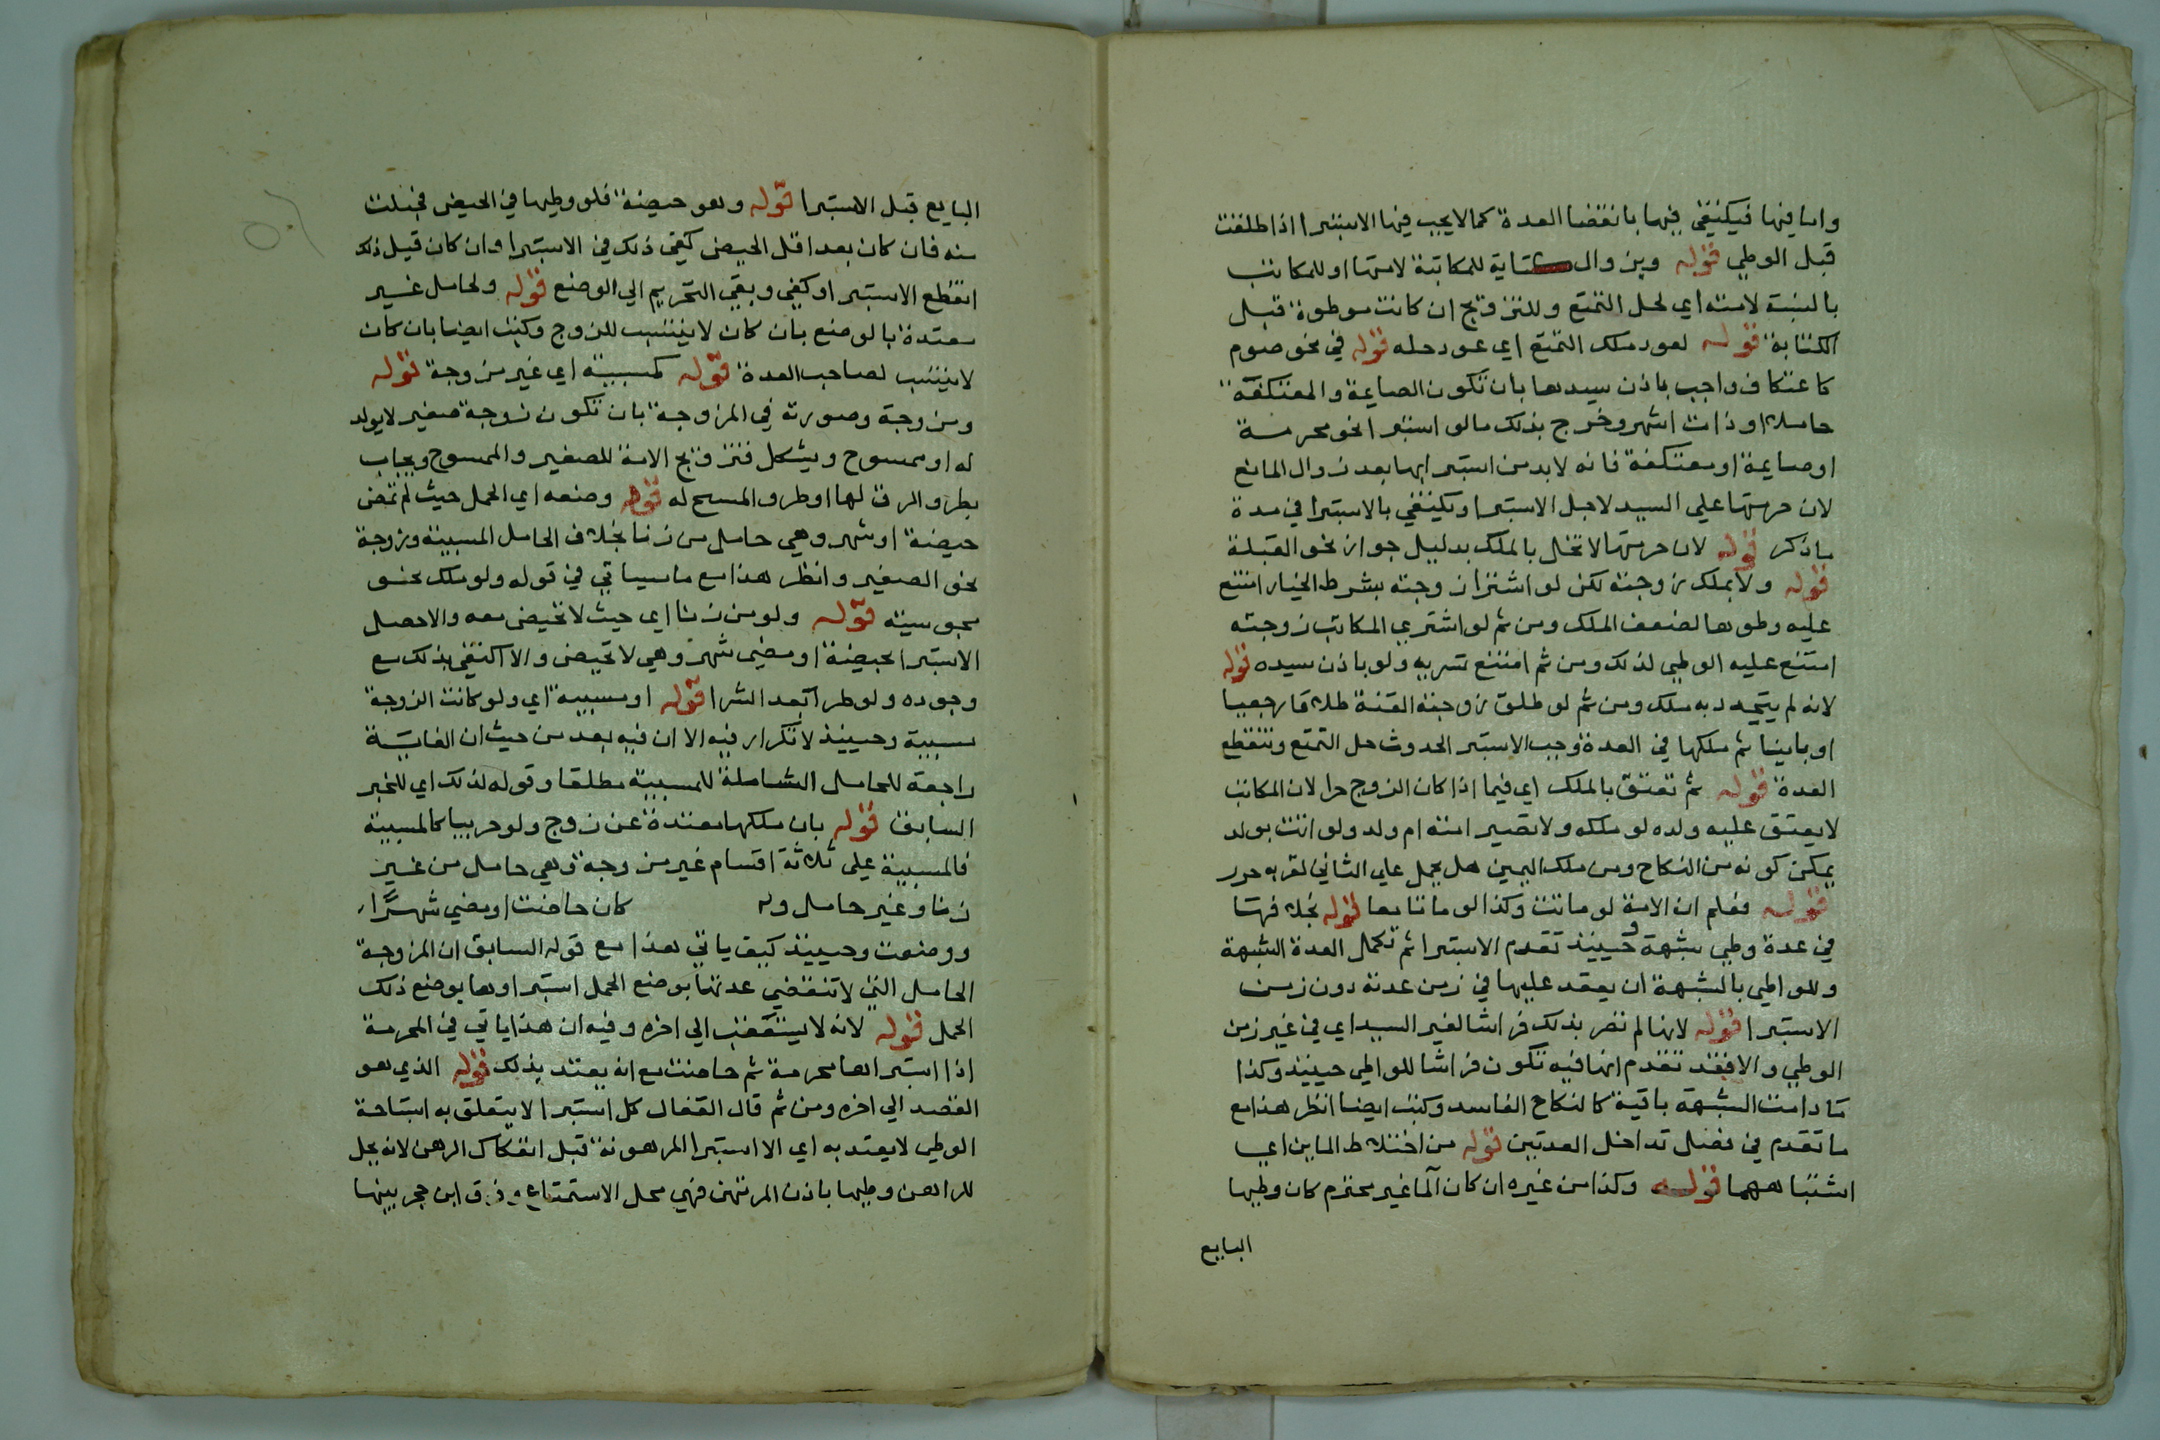 واما فيها فيكتفي فيها بانقضا العدة كما لا يجب فيها الاستبرا اذا طلقت
قبل الوطي قوله وبزوال كتابة للمكاتبة لامتها او للمكاتب
بالنسبة لامته اي لحل التمتع وللتزويج ان كانت موطوة قبل
الكتابة قوله لعود ملك التمتع اي عود حله قوله في نحو صوم
كاعتكاف واجب باذن سيدها بان تكون الصايمة والمعتكفة
حاملا او ذات اشهر وخرج بذلك ما لو استبرا نحو محرمة
او صايمة او معتكفة فانه لابد من استبرايها بعد زوال المانع
لان حرمتها علي السيد لاجل الاستبرا ويكتفي بالاستبرا في مدة
ما ذكر قوله لان حرمتها لا تخل بالملك بدليل جواز نحو القبلة
قوله ولا بملك زوجته لكن لو اشترا زوجته بشرط الخيار امتنع
عليه وطوها لضعف الملك ومن ثم لو اشتري المكاتب زوجته
امتنع عليه الوطي لذلك ومن ثم امتنع تسريه ولو باذن سيده قوله
لانه لم يتجدد به ملك ومن ثم لو طلق زوجته القنة طلاقا رجعيا
او باينا ثم ملكها في العدة وجب الاستبرا لحدوث حل التمتع وتنقطع
العدة قوله ثم تعتق بالملك اي فيما اذا كان الزوج حرا لان المكاتب
لا يعتق عليه ولده لو ملكه ولا تصير امته ام ولد ولو اتت بولد
يمكن كونه من النكاح ومن ملك اليمين هل يحمل علي الثاني لقربه حرر
قوله فعلم ان الامة لو ماتت وكذا لو ماتا معا قوله بخلافهتا
في عدة وطي شبهة وحينيذ تقدم الاستبرا ثم تكمل العدة الشبهة
وللواطي بالشبهة ان يعقد عليها في زمن عدته دون زمن
الاستبرا قوله لانها لم تصر بذلك فراشا لغير السيد اي في غير زمن
الوطي والا فقد تقدم انها فيه تكون فراشا للواطي حينيذ وكذا
ما دامت الشبهة باقية كالنكاح الفاسد وكتب ايضا انظر هذا مع
ما تقدم في فصل تداخل العدتين قوله من اختلاط الماين اي
اشتباههما قوله وكذا من غيره ان كان الما غير محترم كان وطيها
البايع
البايع قبل الاستبرا قوله وهو حيضة فلو وطيها في الحيض فحبلت
منه فان كان بعد اقل الحيض كفي ذلك في الاستبرا وان كان قبل ذلك
انقطع الاستبرا وكفي وبقي التحريم الي الوضع قوله ولحامل غير
معتدة بالوضع بان كان لا ينتسب للزوج وكتب ايضا بان كان
لا ينتسب لصاحب العدة قوله كمسبية اي غير مزوجة قوله
ومزوجة وصورته في المزوجة بان تكون زوجة صغير لا يولد
له او ممسوح ويشكل فتزويج الامة للصغير والممسوح ويجاب
بطرو الرق لها او طرو المسح له قوله وضعه اي الحمل حيث لم تمض
حيضة او شهر وهي حامل من زنا بخلاف الحامل المسبية وزوجة
نحو الصغير وانظر هذا مع ما سياتي في قوله ولو ملك نحو
مجوسية قوله ولو من زنا اي حيث لا تحيض معه والا حصل
الاستبرا بحيضة او مضي شهر وهي لا تحيض والا اكتفي بذلك مع
وجوده ولو طرا بعد الشرا قوله او مسبية اي ولو كانت الزوجة
مسبية وحينيذ لا تكرار فيه الا ان فيه بعد من حيث ان الغاية
راجعة للحامل الشاملة للمسبية مطلقا وقوله لذلك اي للخبر
السابق قوله بان ملكها معتدة عن زوج ولو حربيا كالمسبية
فالمسبية علي ثلاثة اقسام غير مزوجة وهي حامل من غير
زنا وغير حامل وله كان حاضت او مضي شهرا
ووضعت وحينيذ كيف ياتي هذا مع قوله السابق ان المزوجة
الحامل التي لا تنقضي عدتها بوضع الحمل استبراوها بوضع ذلك
الحمل قوله لانه لا يستعقب الي اخره وفيه ان هذا ياتي في المحرمة
اذا استبراها محرمة ثم حاضت مع انه يعتد بذلك قوله الذي هو
القصد الي اخره ومن ثم قال القفال كل استبرا لا يتعلق به استباحة
الوطي لا يعتد به اي الا استبرا المرهونة قبل انفكاك الرهن لانه يحل
للراهن وطيها باذن المرتهن فهي محل الاستمتاع وفرق ابن حجر بينها